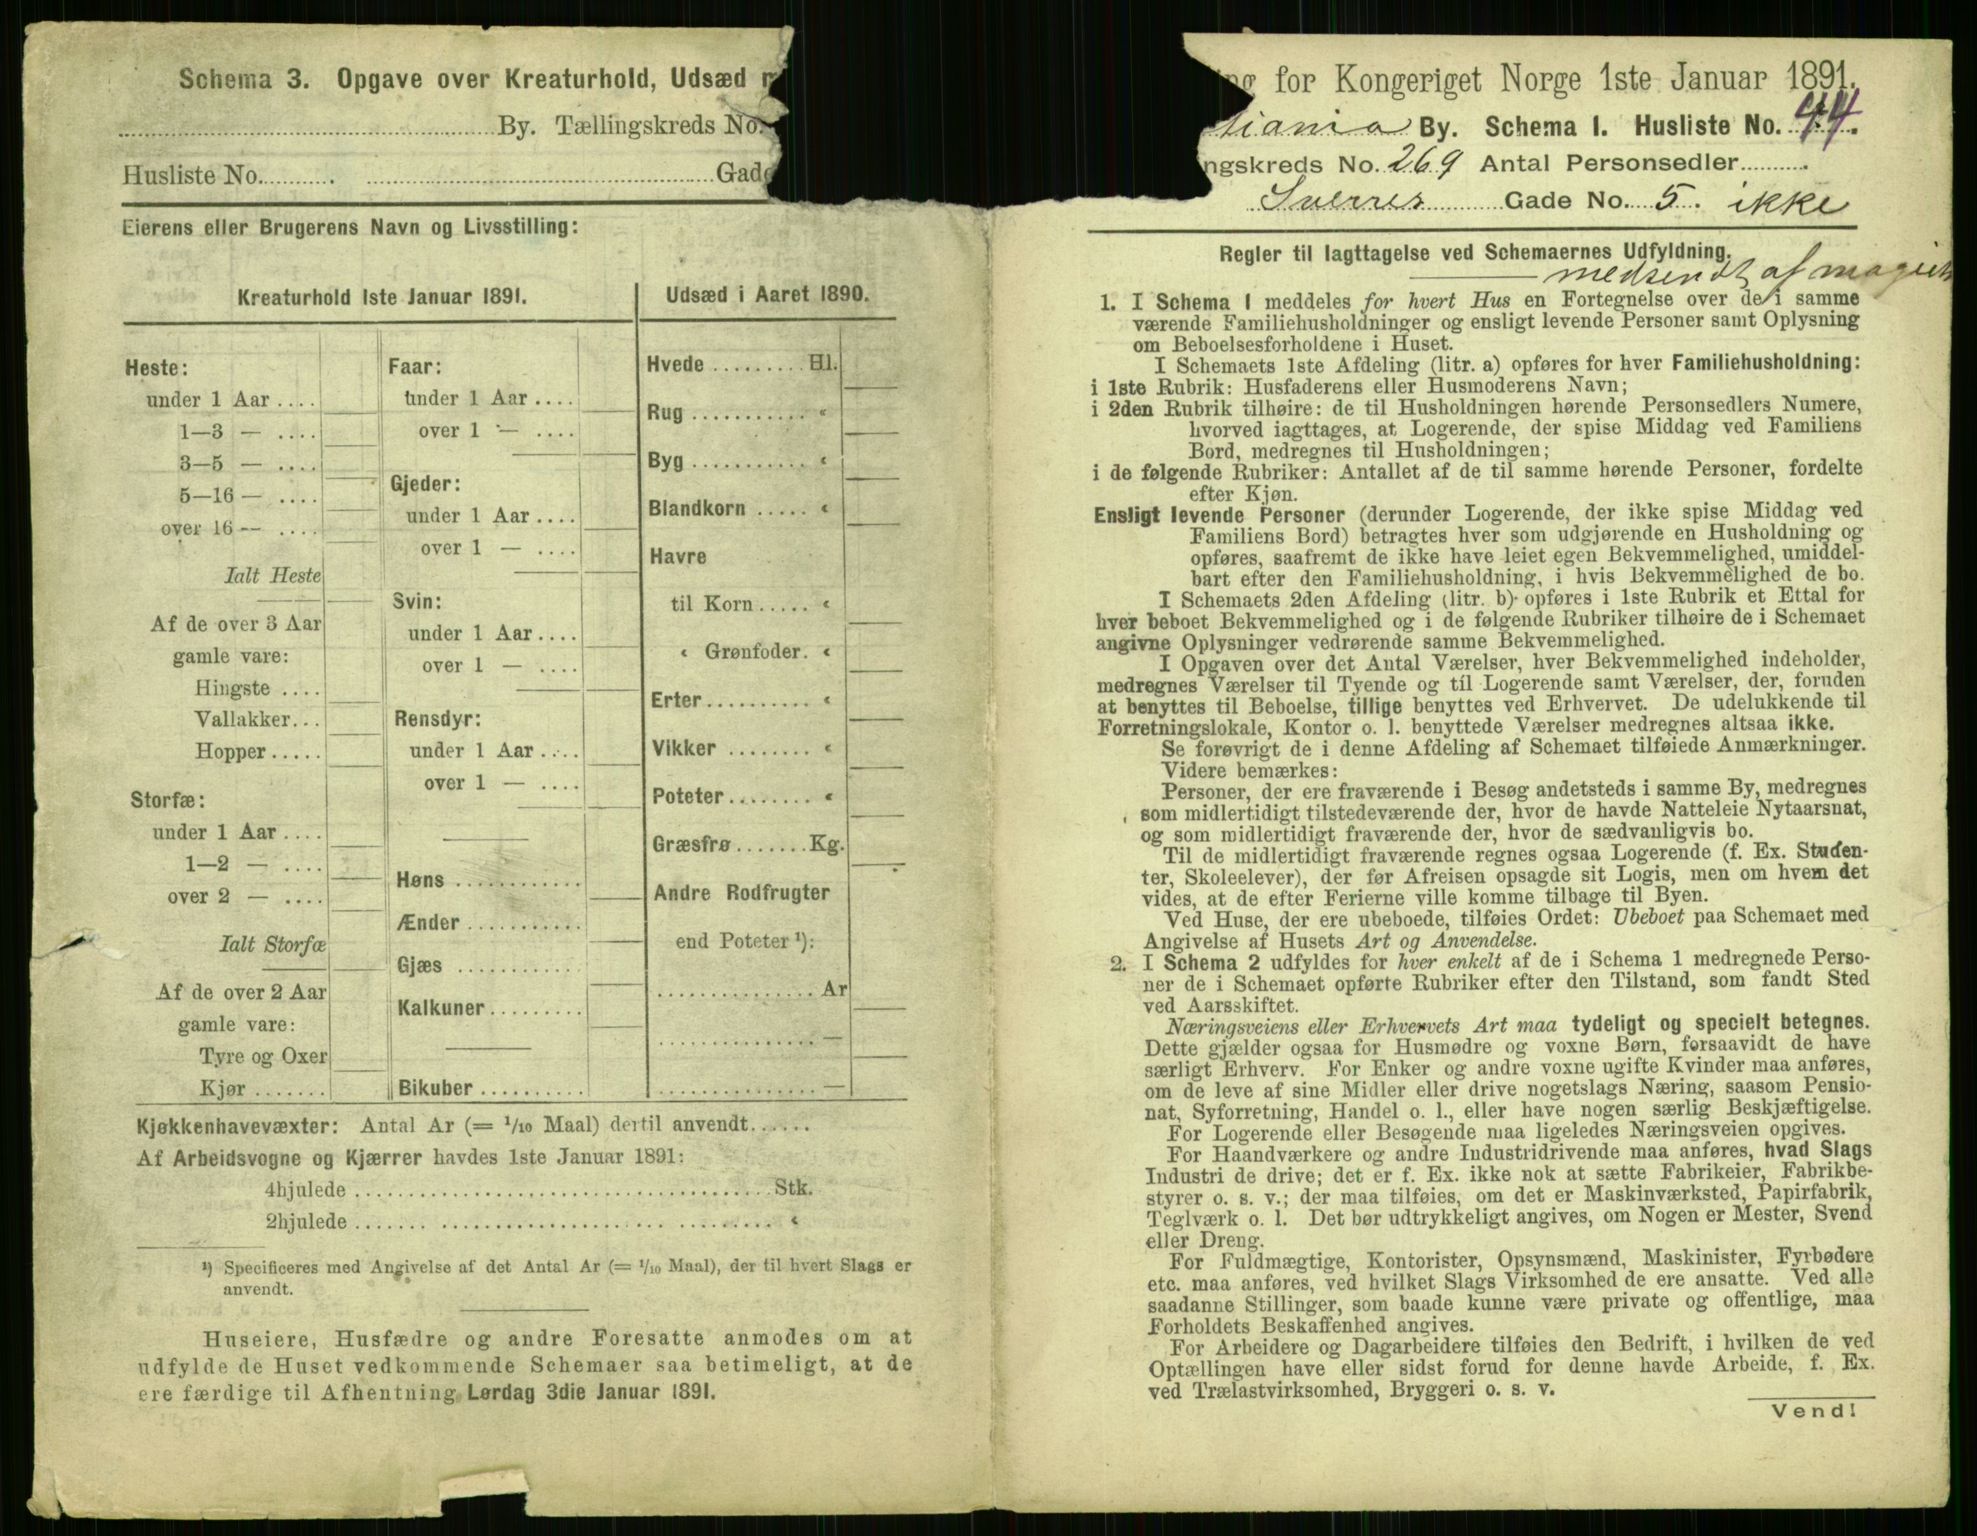 Schema 3. Opgave over Kreaturhold, Udsæd
By. Tællingskreds No.
Husliste No. Gade
Eierens eller Brugerens Navn og Livsstilling:
Kreaturhold 1ste Januar 1891.
Heste:
under 1 Aar
1—3 —
3—5 —
5—16 —
over 16 —
Ialt Heste
Af de over 3 Aar
gamle vare:
Hingste
Vallakker
Hopper
Storfæ:
under 1 Aar
1—2 —
over 2 —
Ialt Storfæ
Af de over 2 Aar
gamle vare:
Tyre og Oxer
Kjør
Faar:
under 1 Aar
over 1 —
Gjeder:
under 1 Aar
over 1 —
Svin:
under 1 Aar
over 1 —
Rensdyr:
under 1 Aar
over 1 —
Høns
Ænder
Gjæs
Kalkuner
Bikuber
Udsæd i Aaret 1890.
Hvede Hl.
Rug «
Byg «
Blandkorn «
Havre
til Korn «
« Grønfoder. «
Erter «
Vikker «
Poteter «
Græsfrø Kg.
Andre Rodfrugter
end Poteter ¹):
Ar
—
—
Kjøkkenhavevæxter: Antal Ar (= 1/10 Maal) dertil anvendt
Af Arbeidsvogne og Kjærrer havdes 1ste Januar 1891:
4hjulede Stk.
2hjulede «
¹) Specificeres med Angivelse af det Antal Ar (= 1/10 Maal), der til hvert Slags er
anvendt.
Huseiere, Husfædre og andre Foresatte anmodes om at
udfylde de Huset vedkommende Schemaer saa betimeligt, at de
ere færdige til Afhentning Lørdag 3die Januar 1891.
ng for Kongeriget Norge 1ste Januar 1891.
tiania By. Schema I. Husliste No. 44.
ngskreds No. 269 Antal Personsedler
Sverres Gade No. 5. ikke
Regler til Iagttagelse ved Schemaernes Udfyldning.
medsendt af
1. I Schema 1 meddeles for hvert Hus en Fortegnelse over de i samme
værende Familiehusholdninger og ensligt levende Personer samt Oplysning
om Beboelsesforholdene i Huset.
I Schemaets 1ste Afdeling (litr. a) opføres for hver Familiehusholdning:
i 1ste Rubrik: Husfaderens eller Husmoderens Navn;
i 2den Rubrik tilhøire: de til Husholdningen hørende Personsedlers Numere,
hvorved iagttages, at Logerende, der spise Middag ved Familiens
Bord, medregnes til Husholdningen;
i de følgende Rubriker: Antallet af de til samme hørende Personer, fordelte
efter Kjøn.
Ensligt levende Personer (derunder Logerende, der ikke spise Middag ved
Familiens Bord) betragtes hver som udgjørende en Husholdning og
opføres, saafremt de ikke have leiet egen Bekvemmelighed, umiddel-
bart efter den Familiehusholdning, i hvis Bekvemmelighed de bo.
I Schemaets 2den Afdeling (litr. b) opføres i 1ste Rubrik et Ettal for
hver beboet Bekvemmelighed og i de følgende Rubriker tilhøire de i Schemaet
angivne Oplysninger vedrørende samme Bekvemmelighed.
I Opgaven over det Antal Værelser, hver Bekvemmelighed indeholder,
medregnes Værelser til Tyende og til Logerende samt Værelser, der, foruden
at benyttes til Beboelse, tillige benyttes ved Erhvervet. De udelukkende til
Forretningslokale, Kontor o. l. benyttede Værelser medregnes altsaa ikke.
Se forøvrigt de i denne Afdeling af Schemaet tilføiede Anmærkninger.
Videre bemærkes:
Personer, der ere fraværende i Besøg andetsteds i samme By, medregnes
som midlertidigt tilstedeværende der, hvor de havde Natteleie Nytaarsnat,
og som midlertidigt fraværende der, hvor de sædvanligvis bo.
Til de midlertidigt fraværende regnes ogsaa Logerende (f. Ex. Studen-
ter, Skoleelever), der før Afreisen opsagde sit Logis, men om hvem det
vides, at de efter Ferierne ville komme tilbage til Byen.
Ved Huse, der ere ubeboede, tilføies Ordet: Ubeboet paa Schemaet med
Angivelse af Husets Art og Anvendelse.
2. I Schema 2 udfyldes for hver enkelt af de i Schema 1 medregnede Perso-
ner de i Schemaet opførte Rubriker efter den Tilstand, som fandt Sted
ved Aarsskiftet.
Næringsveiens eller Erhvervets Art maa tydeligt og specielt betegnes.
Dette gjælder ogsaa for Husmødre og voxne Børn, forsaavidt de have
særligt Erhverv. For Enker og andre voxne ugifte Kvinder maa anføres,
om de leve af sine Midler eller drive nogetslags Næring, saasom Pensio-
nat, Syforretning, Handel o. l., eller have nogen særlig Beskjæftigelse.
For Logerende eller Besøgende maa ligeledes Næringsveien opgives.
For Haandværkere og andre Industridrivende maa anføres, hvad Slags
Industri de drive; det er f. Ex. ikke nok at sætte Fabrikeier, Fabrikbe-
styrer o. s. v.; der maa tilføies, om det er Maskinværksted, Papirfabrik,
Teglværk o. l. Det bør udtrykkeligt angives, om Nogen er Mester, Svend
eller Dreng.
For Fuldmægtige, Kontorister, Opsynsmænd, Maskinister, Fyrbødere
etc. maa anføres, ved hvilket Slags Virksomhed de ere ansatte. Ved alle
saadanne Stillinger, som baade kunne være private og offentlige, maa
Forholdets Beskaffenhed angives.
For Arbeidere og Dagarbeidere tilføies den Bedrift, i hvilken de ved
Optællingen have eller sidst forud for denne havde Arbeide, f. Ex.
ved Trælastvirksomhed, Bryggeri o. s. v.
Vend!